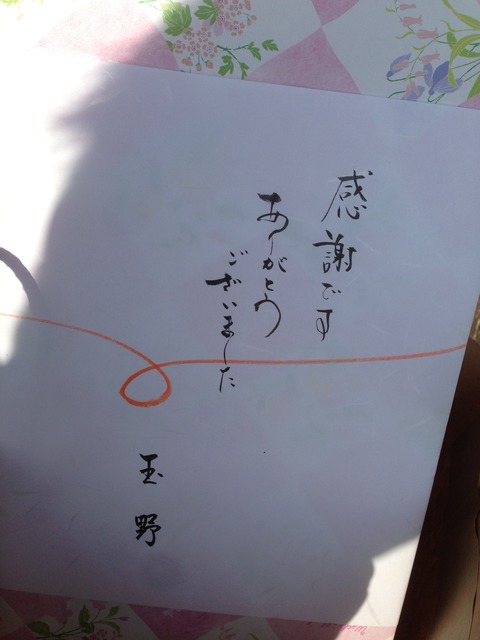 感謝です
ありがとう
ございました
玉野